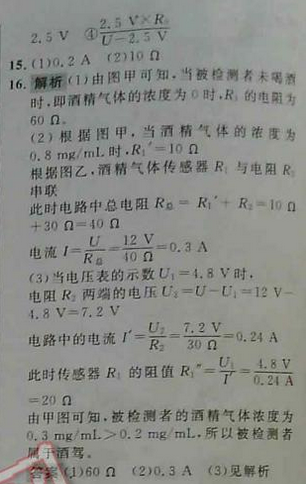 2.5 V ④ 2.5 V×R₀/U−2.5 V
15. (1)0.2 A (2)10 Ω
16. 解析 (1)由图甲可知,当被检测者未喝酒
时,即酒精气体的浓度为 0 时,R₁ 的电阻为
60 Ω。
(2)根据图甲,当酒精气体的浓度为
0.8 mg/mL 时,R₁′=10 Ω
根据图乙,酒精气体传感器 R₁ 与电阻 R₂
串联
此时电路中总电阻 R总 = R₁′ + R₂ = 10 Ω
+30 Ω=40 Ω
电流 I=U/R总=12 V/40 Ω=0.3 A
(3)当电压表的示数 U₁=4.8 V 时,
电阻 R₂ 两端的电压 U₂=U−U₁=12 V−
4.8 V=7.2 V
电路中的电流 I′=U₂/R₂=7.2 V/30 Ω=0.24 A
此时传感器 R₁ 的阻值 R₁″=U₁/I′=4.8 V/0.24 A
=20 Ω
由甲图可知,被检测者的酒精气体浓度为
0.3 mg/mL>0.2 mg/mL,所以被检测者
属于酒驾。
答案 (1)60 Ω (2)0.3 A (3)见解析